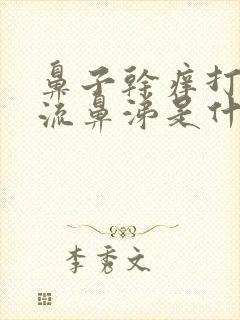 鼻子干痒打
流鼻涕是什
李秀文